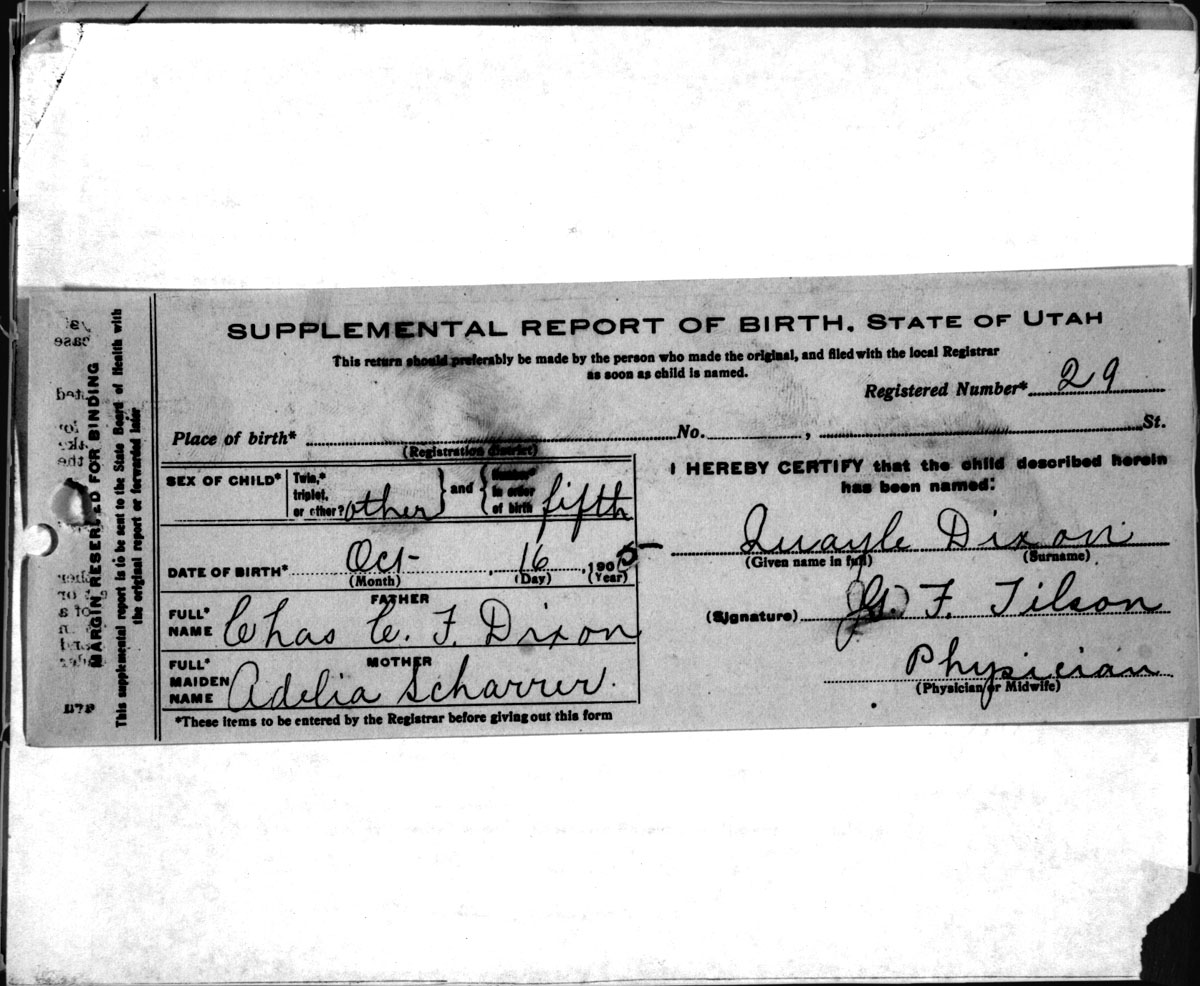 SUPPLEMENTAL REPORT OF BIRTH. STATE OF UTAH
This return should preferably be made by the person who made the original, and filed with the local Registrar
as soon as child is named.
Registered Number* 29
Place of birth* No. , St.
(Registration district)
SEX OF CHILD* Twin,* triplet, or other? other } and { Number* in order of birth fifth
DATE OF BIRTH* Oct- 16 , 1905
(Month) (Day) (Year)
FATHER
FULL* NAME Chas C. F. Dixon
MOTHER
FULL* MAIDEN NAME Adelia Scharrer.
*These items to be entered by the Registrar before giving out this form
I HEREBY CERTIFY that the child described herein
has been named:
Quayle Dixon
(Given name in full) (Surname)
(Signature) F. Tilson
Physician
(Physician or Midwife)
MARGIN RESERVED FOR BINDING
This supplemental report is to be sent to the State Board of Health with
the original report or forwarded later